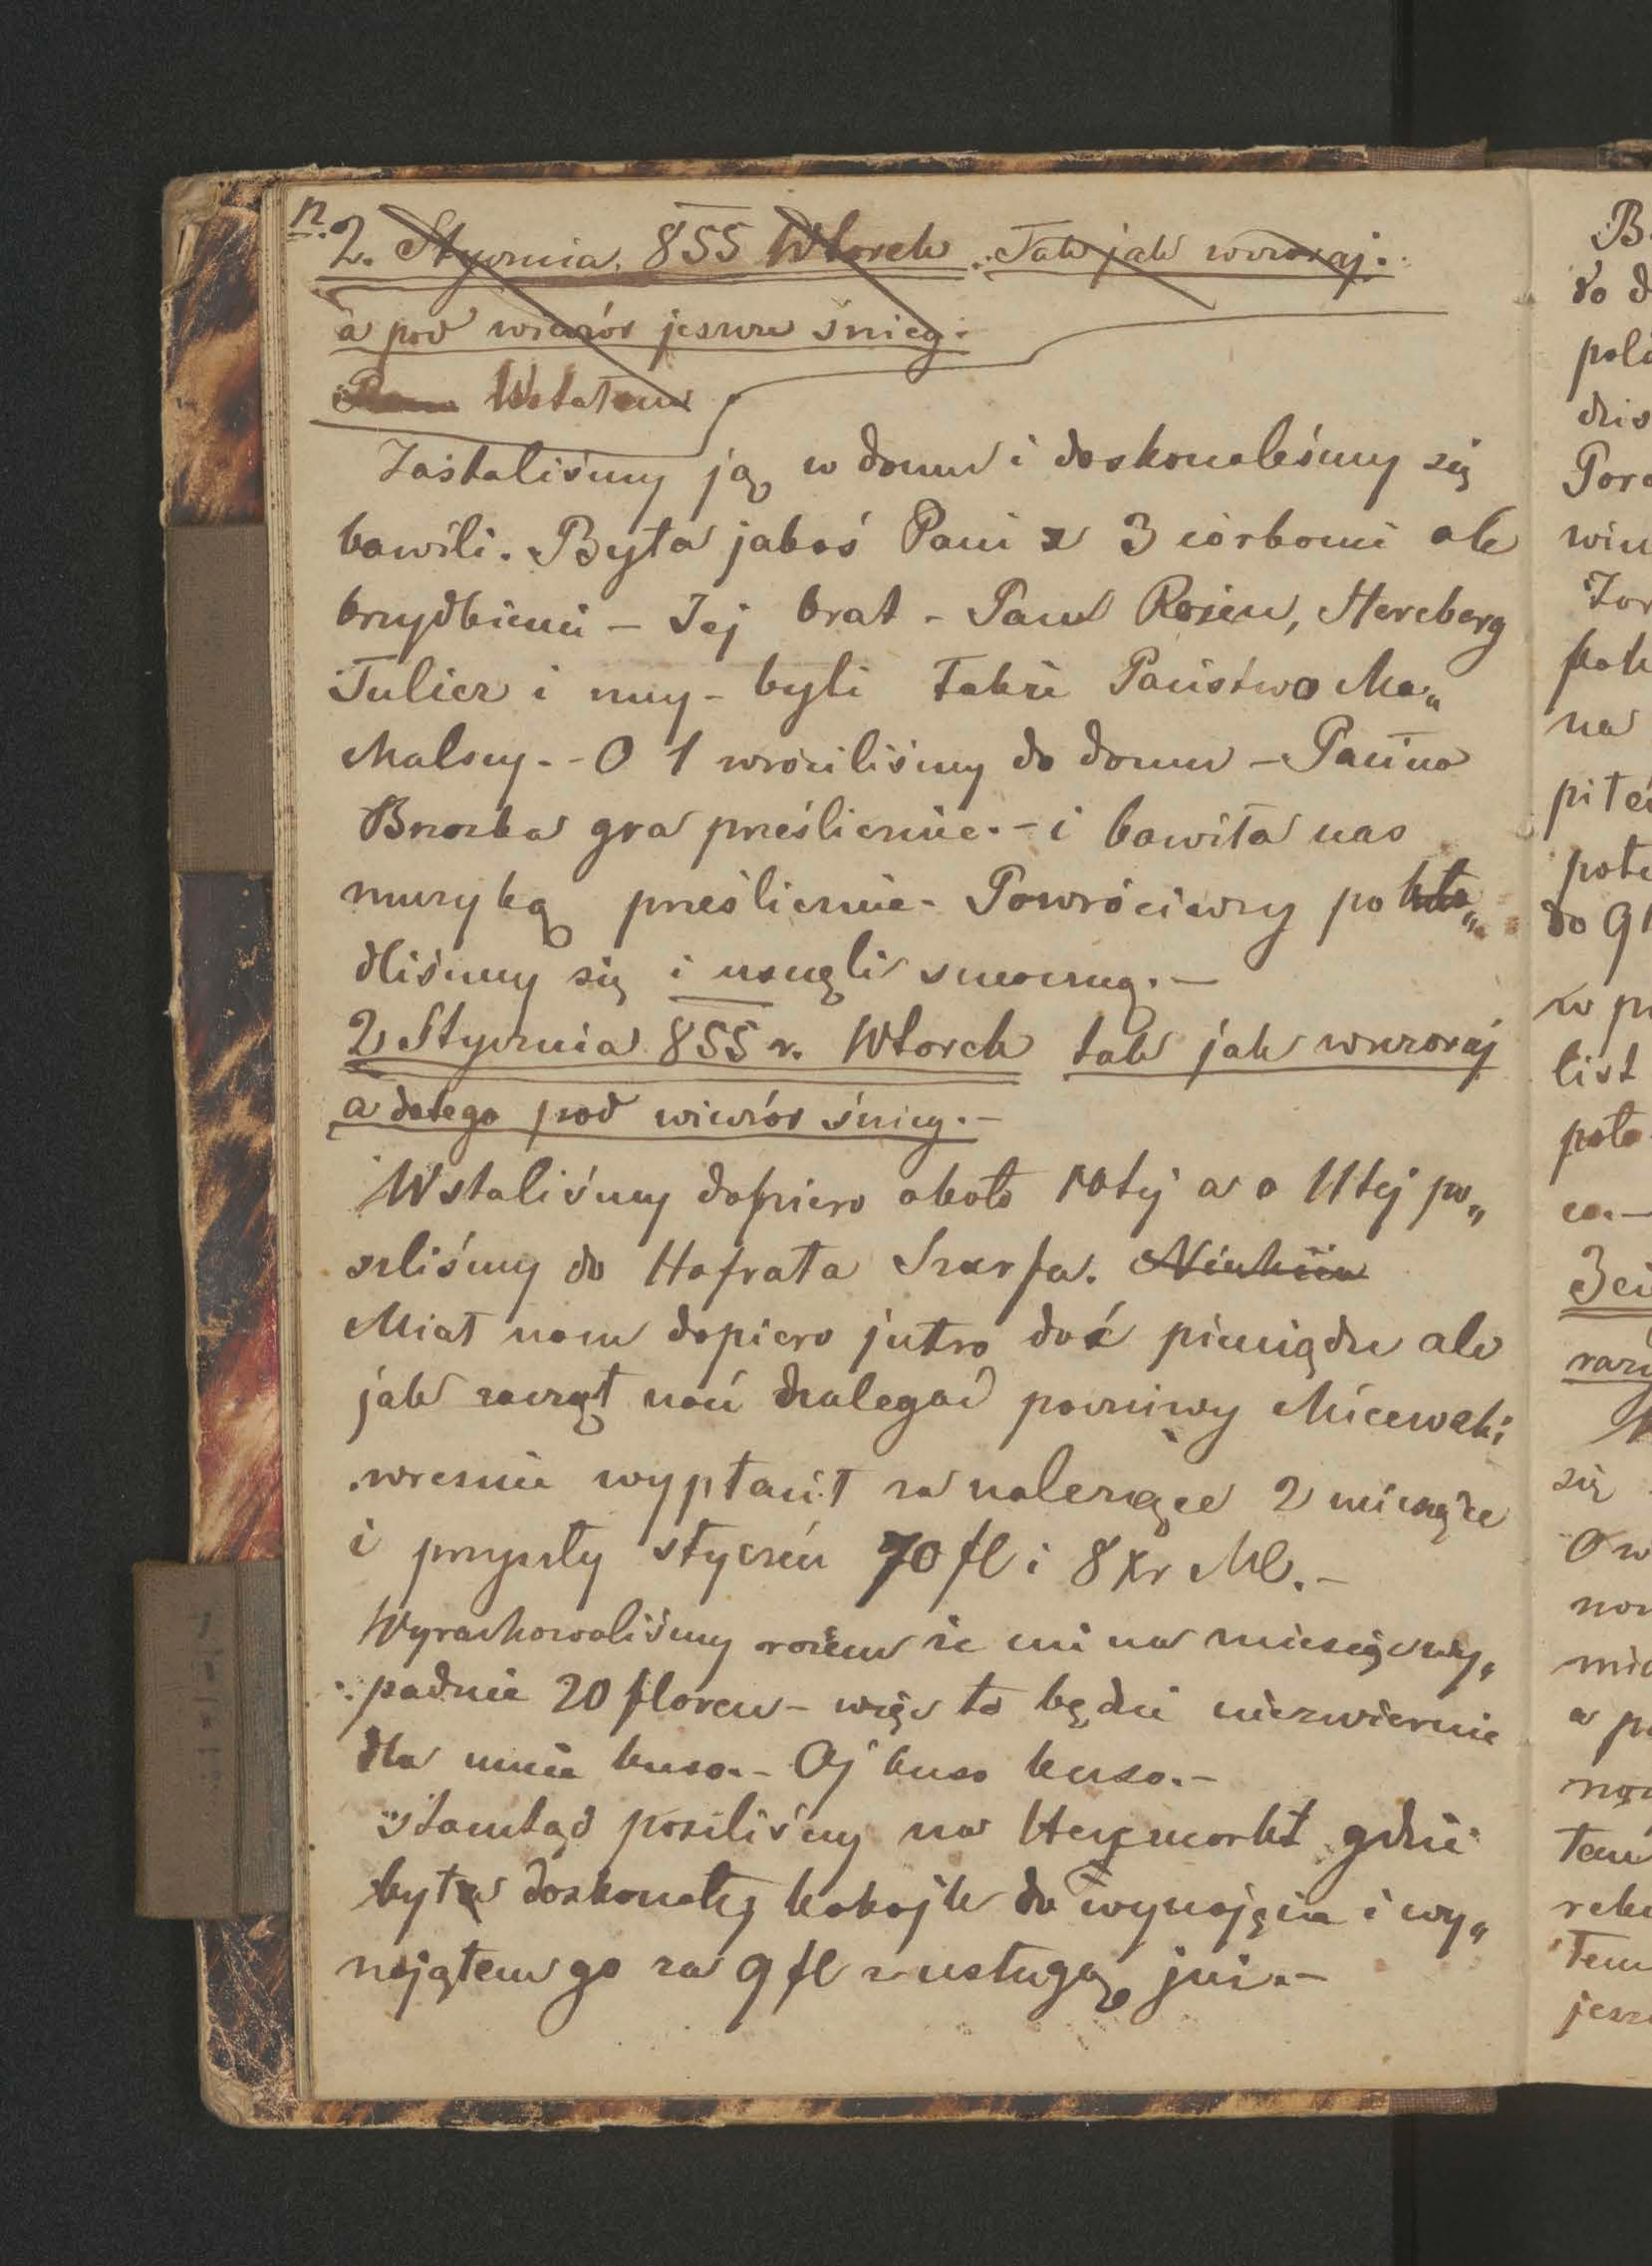 n.
2. Stycznia. 855 Wtorek. Tak jak wczoraj.
a pod wieczór jeszcze śnieg.
Wstałem
Zastaliśmy ją w domu i doskonaleśmy się
bawili. Była jakaś Pani z 3 córkami ale
brzydkiemi – Jej brat – Pan Rosen, Hercberg
Tulicz i my – byli także Państwo Ma„
Malscy. – O 1 wróciliśmy do domu – Panna
Brzozka gra prześlicznie. – i bawiła nas
muzyką prześlicznie – Powróciwszy pokła„
dliśmy się i usnęli smaczną. –
2 Stycznia 855 r. Wtorek tak jak wczoraj
a do tego pod wieczór śnieg. –
Wstaliśmy dopiero około 10tej a o 11tej po„
szliśmy do Hofrata Szarfa.
Miał nam dopiero jutro dać pieniądze ale
jak zaczął nań nalegać poczciwy Micewski
wreszcie wypłacił za należące 2 miesiące
i przyszły styczeń 70 fl i 8 Xr MC. –
Wyrachowaliśmy razem że mi na miesiąc wy„
padnie 20 floren – więc to będzie niezmiernie
dla mnie kuso. – Oj kuso kuso. –
Stamtąd poszliśmy na Heymarkt gdzie
była doskonały pokojik do wynajęcia i wy„
nająłem go za 9 fl z usługą już. –
B
do d
pola
dzis
Poro
na
pi té
do 9
w p
list
poło
co. –
się
a p
tem
jesz